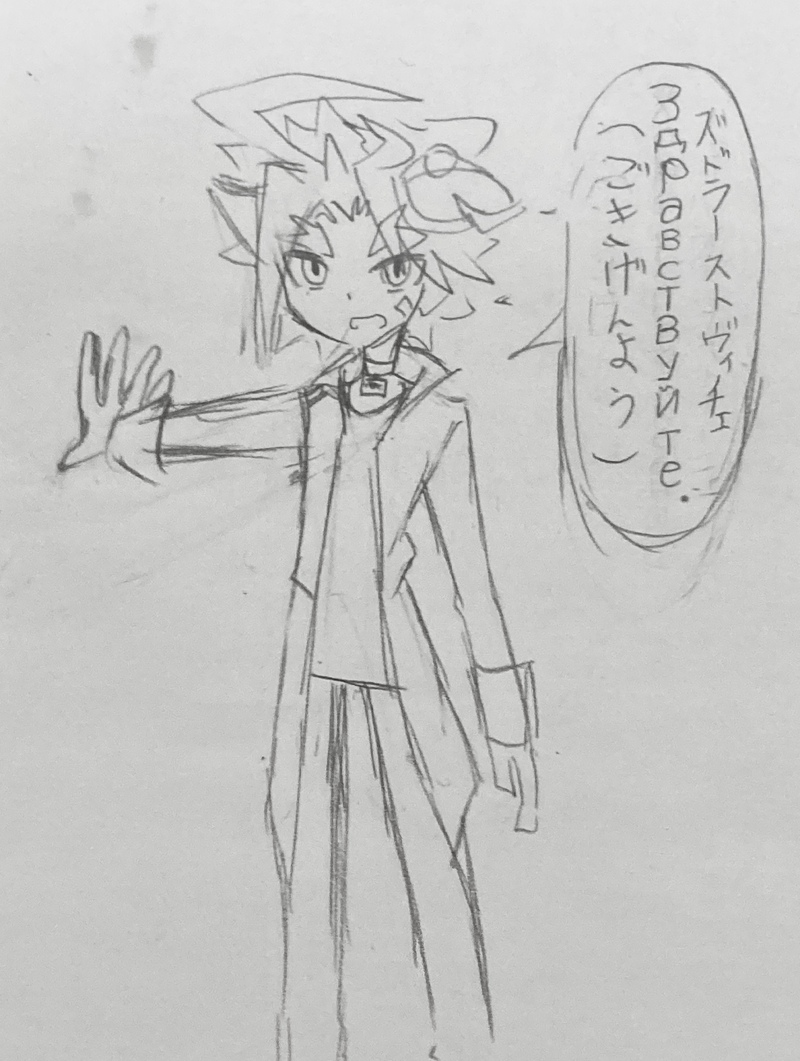 ズドラーストヴィチェ
Здравствуйте.
(ごきげんよう)